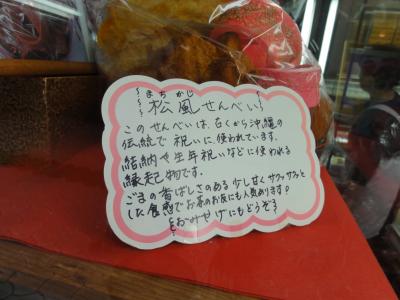 まちかじ
～松風せんべい～
このせんべいは、古くから沖縄の
伝統で祝いに使われています。
結納や生年祝いなどに使われる
縁起物です。
ごまの香ばしさのある少し甘くサクッサクッと
した食感でお茶のお友にも人気あります♪
おみやげにもどうぞ